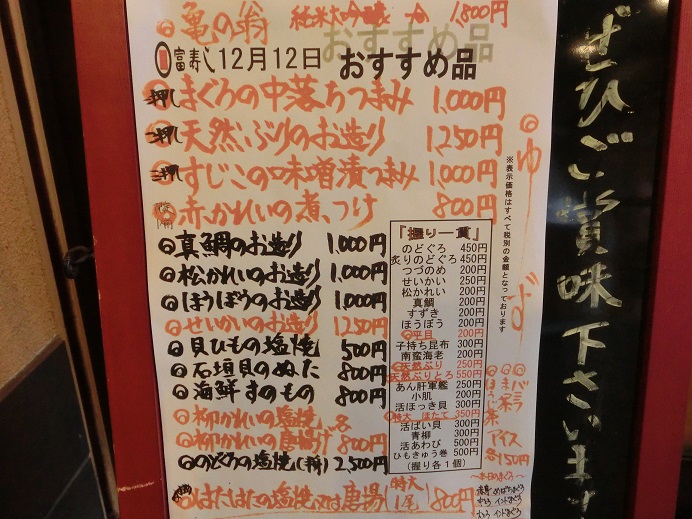 亀の翁 純米大吟醸 一合 1,800円
富寿し12月12日 おすすめ品
一押し まぐろの中落ちつまみ 1,000円
二押し 天然ぶりのお造り 1,250円
三押し すじこの味噌漬つまみ 1,000円
赤かれいの煮つけ 800円
真鯛のお造り 1,000円
松かれいのお造り 1,000円
ほうぼうのお造り 1,000円
せいかいのお造り 1250円
貝ひもの塩焼 500円
石垣貝のぬた 800円
海鮮すのもの 800円
柳かれいの塩焼 各
柳かれいの唐揚げ 800円
のどぐろの塩焼 2,500円
はたはたの塩焼又は唐揚 (特大1尾) 800円
『握り一貫』
のどぐろ 450円
炙りのどぐろ 450円
つづのめ 200円
せいかい 250円
松かれい 200円
真鯛 200円
すずき 200円
ほうぼう 200円
平目 200円
子持ち昆布 300円
南蛮海老 200円
天然ぶり 250円
天然ぶりとろ 550円
あん肝軍艦 250円
小肌 200円
活ほっき貝 300円
特大 ほたて 350円
活ばい貝 300円
青柳 300円
活あわび 500円
ひもきゅう巻 500円
(握り各1個)
※表示価格はすべて税別の金額となっております
アイス
各150円
〜本日のまぐろ〜
ぜひご賞味下さいます